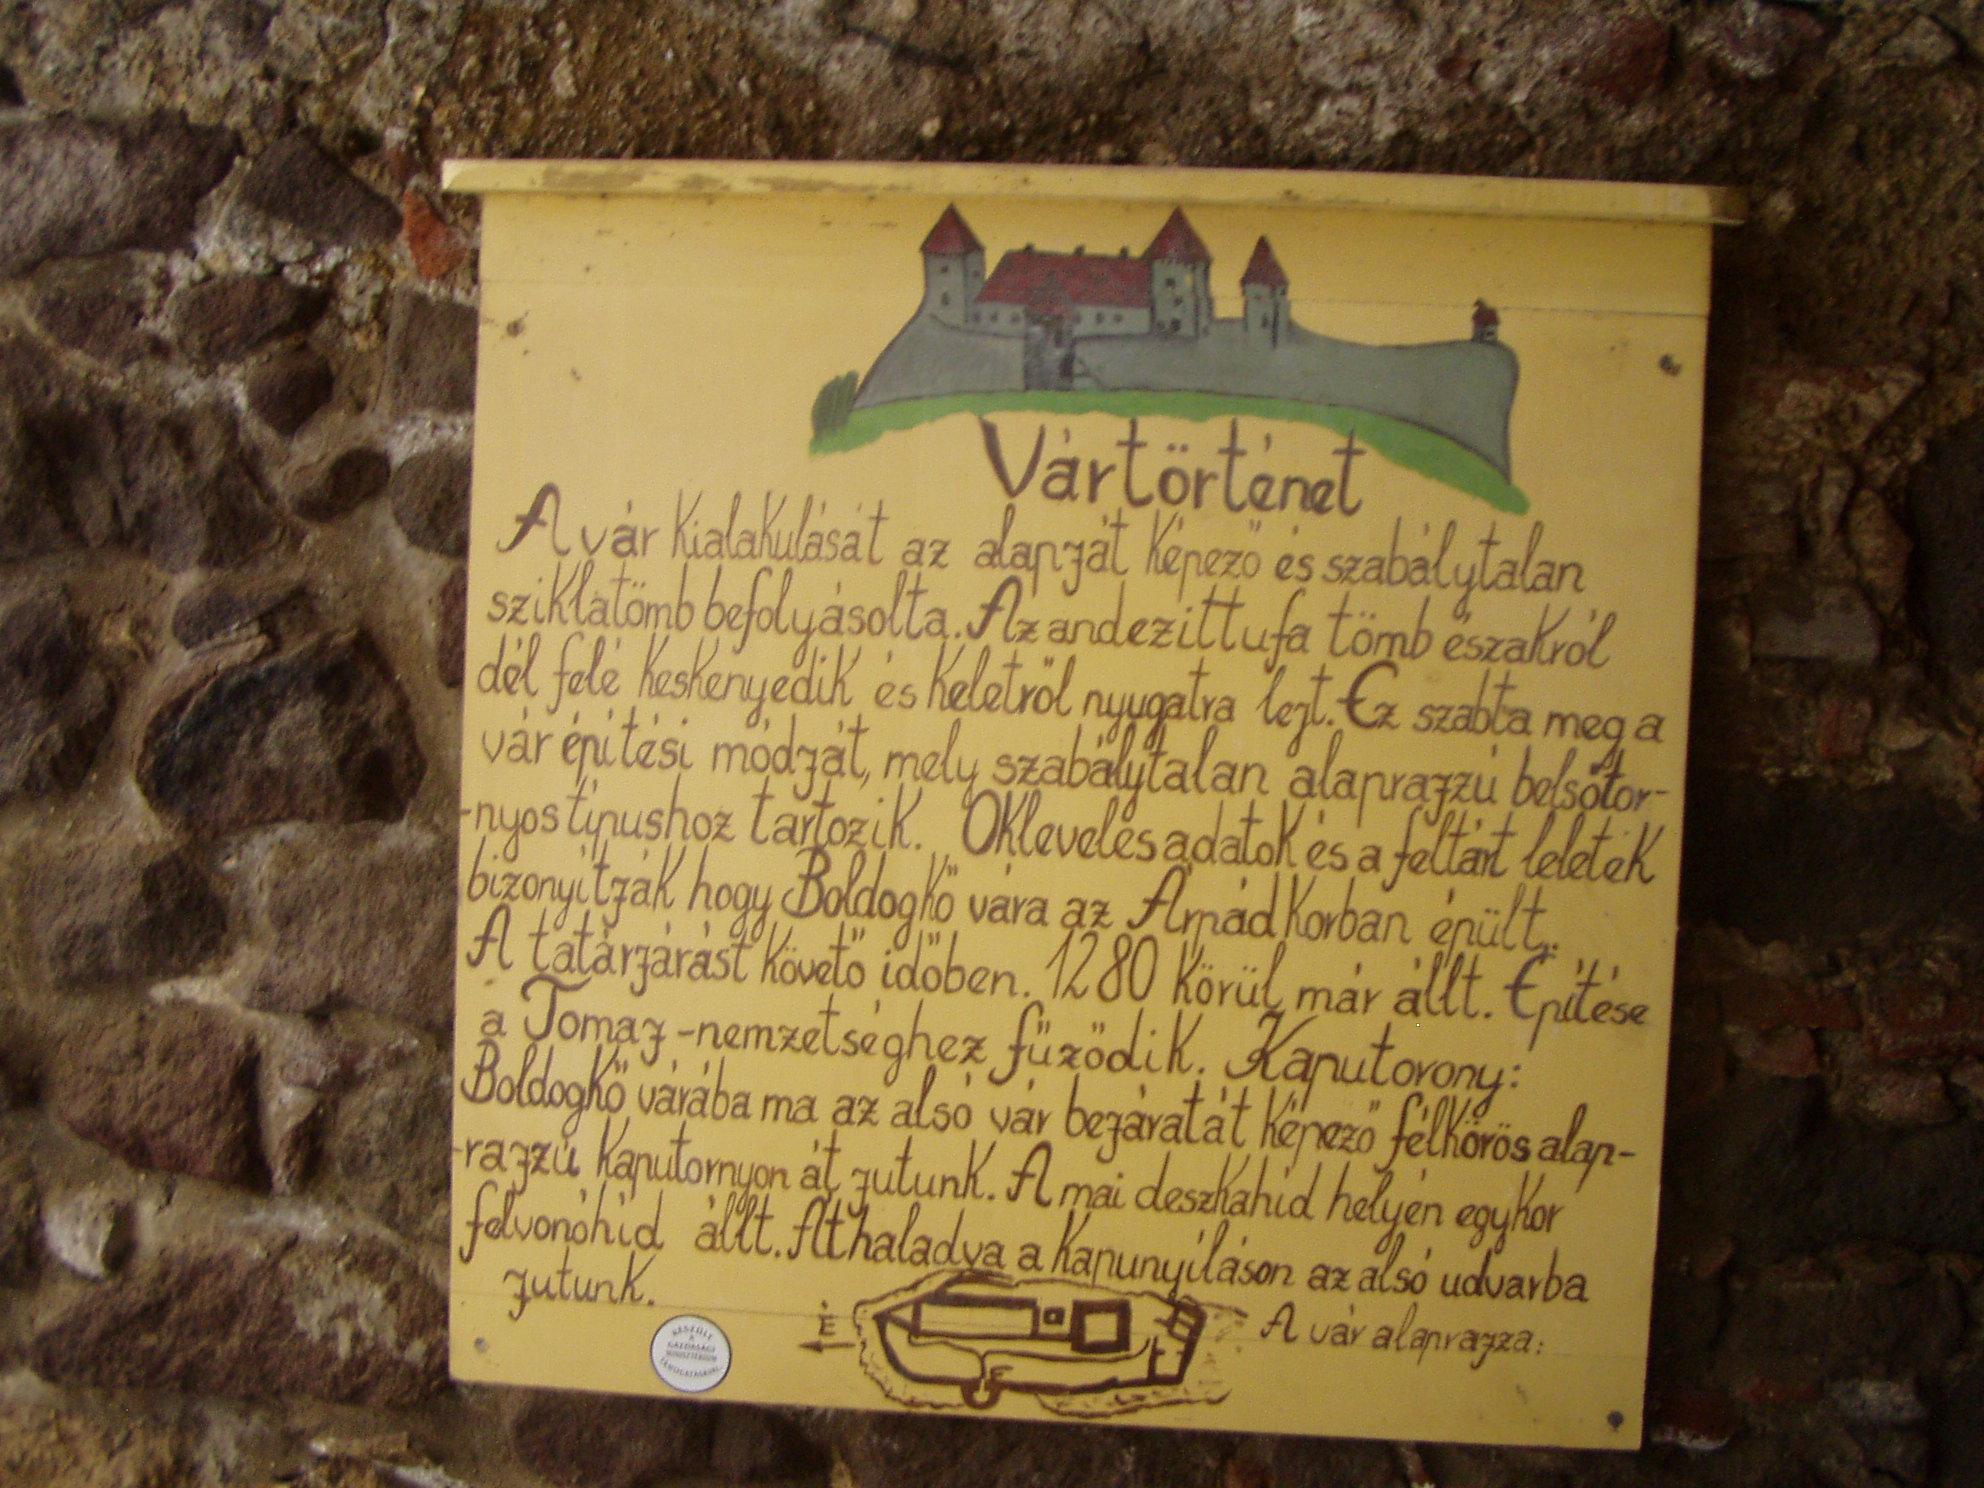 Vártörténet
A vár kialakulását az alapját képező és szabálytalan
sziklatömb befolyásolta. Az andezittufa tömb északról
dél felé keskenyedik és keletről nyugatra lejt. Ez szabta meg a
vár építési módját, mely szabálytalan alaprajzú belsőtor-
-nyos típushoz tartozik. Okleveles adatok és a feltárt leletek
bizonyítják hogy Boldogkő vára az Árpádkorban épült.
A tatárjárást követő időben. 1280 körül már állt. Építése
a Tomaj-nemzetséghez fűződik. Kaputorony:
Boldogkő várába ma az alsó vár bejáratát képező félkörös alap-
-rajzú kaputornyon át jutunk. A mai deszkahíd helyén egykor
felvonóhíd állt. Áthaladva a kapunyíláson az alsó udvarba
jutunk.
É
A vár alaprajza:
KÉSZÜLT
A
GAZDASÁGI
MINISZTÉRIUM
TÁMOGATÁSÁVAL